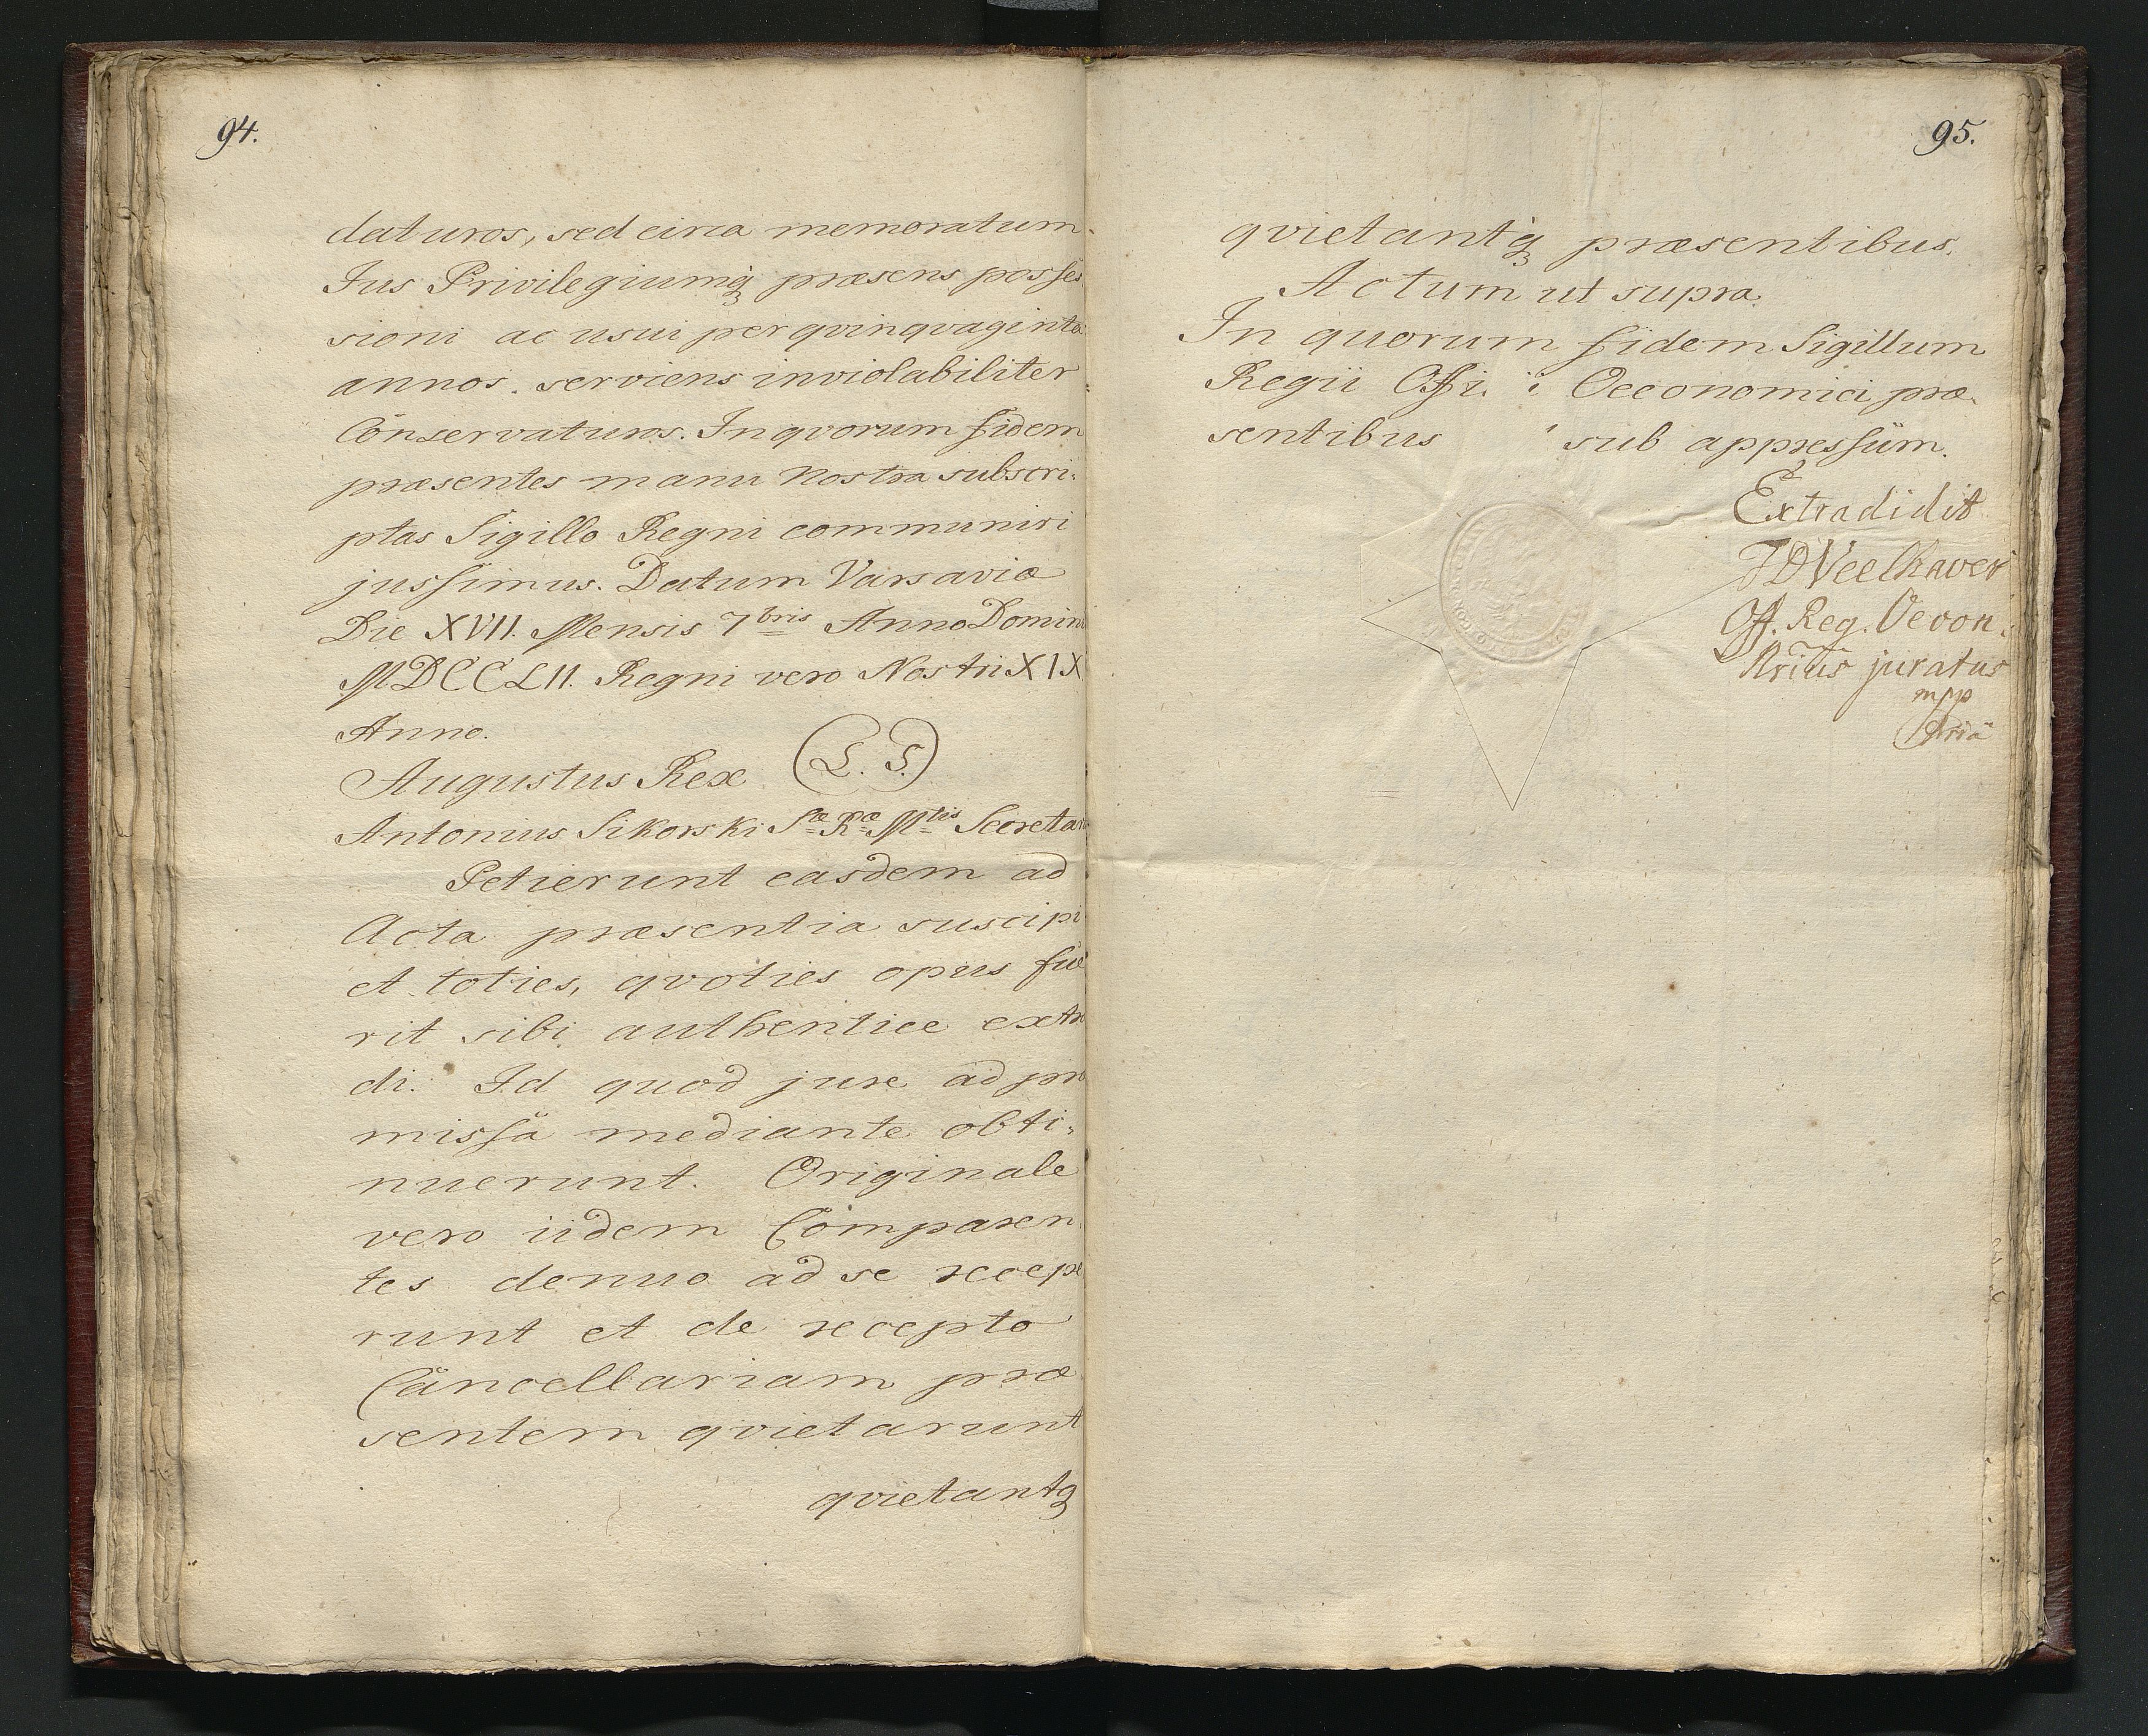 94.
daturos, sed circa memoratum
Jus Privilegiumq præsens posses
sioni ac usui per qvinqvaginta
annos serviens inviolabiliter
Conservaturos. In qvorum fidem
præsentes manu Nostra subscri-
ptas Sigillo Regni communiri
jussimus. Datum Varsaviæ
Die XVII. Mensis 7bris Anno Domini
MDCCLII. Regni vero Nostri XIX
Anno.
Augustus Rex (L. S.)
Antonius Sikorski Sæ Ræ Mtis Secretar
Petierunt easdem ad
Acta præsentia suscipi
et toties, qvoties opus fue
rit sibi authentice extra
di. Id quod jure ad præ
missa mediante obti-
nuerunt. Originale
vero iidem Comparen
tes denuo ad se recepe
runt et de recepto
Cancellariam præ
sentem qvietarunt
qvietantq
95.
qvietantq præsentibus.
Actum ut supra.
In quorum fidem Sigillum
Regii Offi i Oeconomici præ-
sentibus sub appressum.
Extradidit
Off. Reg. Oecon.
Nrius juratus
mpp